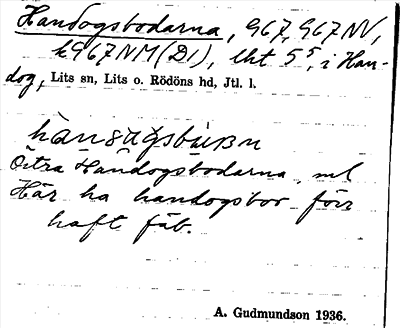 Handogsbodarna, 967, 967 NV,
k967 NM (D1), lht 5⁵, i Han-
dog, Lits sn, Lits o. Rödöns hd, Jtl. l.
Östra Handogsbodarna, ml
Här ha handogsbor förr
haft fäb.
A. Gudmundson 1936.